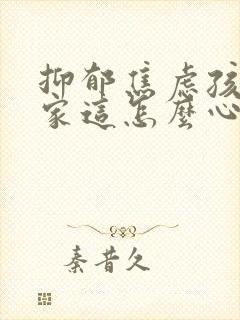 抑郁焦虑孩
家這怎麼心
秦昔久